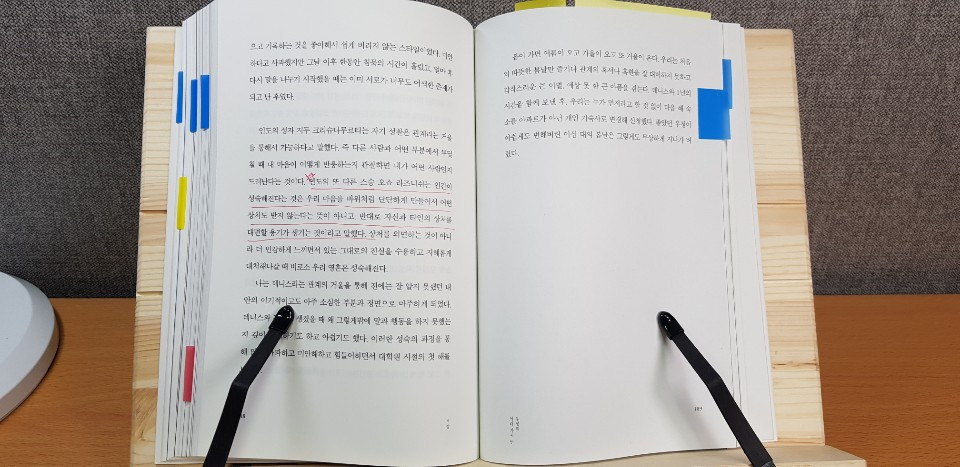 으고 기록하는 것을 좋아해서 쉽게 버리지 않는 스타일이었다. 가볍
름다고 시작했지만 그날 이후 한동안 침묵의 시간이 흘렀고, 얼마 후
다시 말을 나누기 시작했을 때는 이미 서로가 너무도 어색한 존재가
되고 난 후였다.
인도의 성자 지두 크리슈나무르티는 자기 성찰은 관계라는 거울
을 통해서 가능하다고 말했다. 즉 다른 사람과 어떤 부분에서 부딪
힐 때 내 마음이 어떻게 반응하는지 관찰하면 내가 어떤 사람인지
드러난다는 것이다. 인도의 또 다른 스승 오쇼 라즈니쉬는 인간이
성숙해진다는 것은 우리 마음을 바위처럼 단단하게 만들어서 어떤
상처도 받지 않는다는 뜻이 아니고, 반대로 자신과 타인의 상처를
대면할 용기가 생기는 것이라고 말했다. 상처를 외면하는 것이 아니
라 더 민감하게 느끼면서 있는 그대로의 진실을 수용하고 지혜롭게
대처해나갈 때 비로소 우리 영혼은 성숙해진다.
나는 데니스라는 관계의 거울을 통해 전에는 잘 알지 못했던 내
안의 이기적이고도 아주 소심한 부분과 정면으로 마주하게 되었다.
데니스와 생겼을 때 왜 그렇게밖에 말과 행동을 하지 못했는
지 하기도 하고 아쉽기도 했다. 이러한 성숙의 과정을 통
해 하고 미안해하고 힘들어하면서 대학원 시절의 첫 해를
봄이 가면 여름이 오고 가을이 오고 또 겨울이 온다. 우리는 처음
의 따뜻한 봄날만 즐기다 관계의 혹서나 혹한을 잘 대비하지 못하고
갑작스러운 큰 이별, 예상 못 한 큰 아픔을 겪는다. 데니스와 1년의
시간을 함께 보낸 후, 우리는 누가 먼저라고 할 것 없이 다음 해 숙
소를 아파트가 아닌 개인 기숙사로 변경해 신청했다. 좋았던 우정이
아쉽게도 변해버린 이십 대의 봄날은 그렇게도 무상하게 지나가 버
렸다.
189